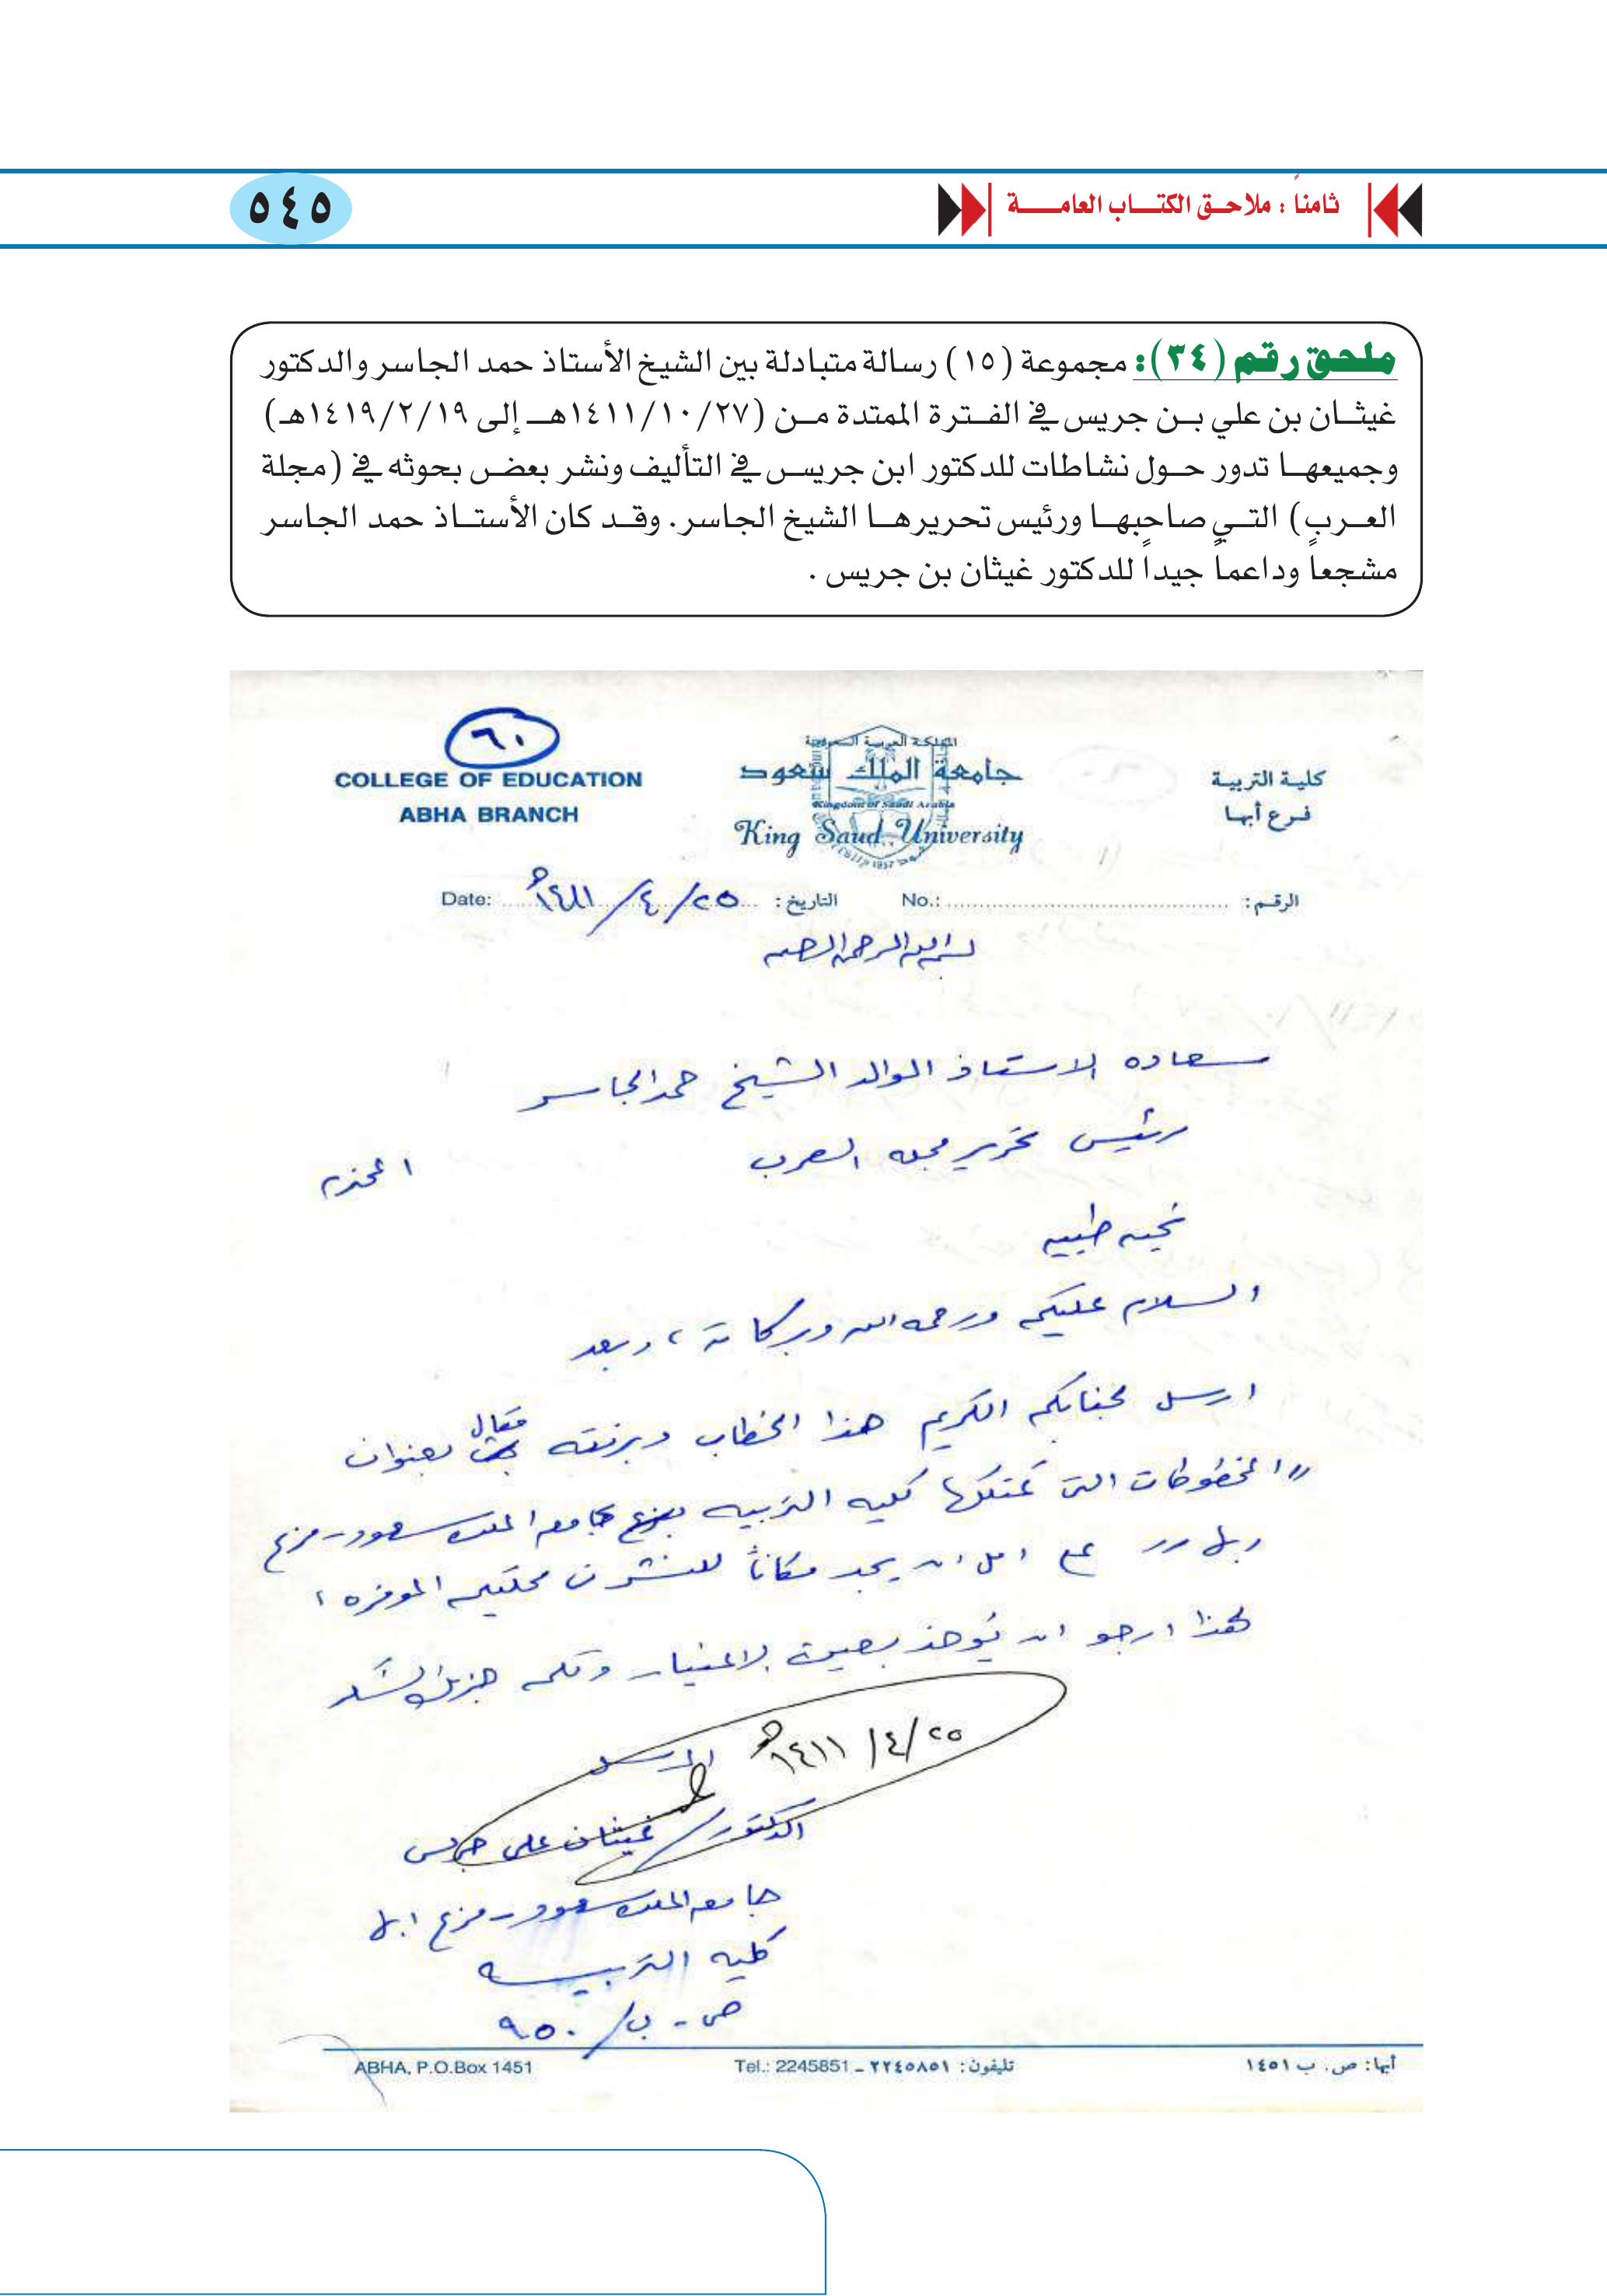 ثامناً : ملاحق الكتاب العامة
٥٤٥
ملحق رقم (٣٤): مجموعة (١٥) رسالة متبادلة بين الشيخ الأستاذ حمد الجاسر والدكتور
غيثان بن علي بن جريس في الفترة الممتدة من (١٤١١/١٠/٢٧هـ إلى ١٤١٩/٢/١٩هـ)
وجميعها تدور حول نشاطات للدكتور ابن جريس في التأليف ونشر بعض بحوثه في (مجلة
العرب) التي صاحبها ورئيس تحريرها الشيخ الجاسر. وقد كان الأستاذ حمد الجاسر
مشجعاً وداعماً جيداً للدكتور غيثان بن جريس .
٦٠
COLLEGE OF EDUCATION
ABHA BRANCH
المملكة العربية السعودية
جامعة الملك سعود
Kingdom of Saudi Arabia
King Saud University
1957
كلية التربية
فرع أبها
الرقم: No.:
التاريخ: ٢٥/٤/١٤١١هـ Date:
بسم الله الرحمن الرحيم
سعاده الاستاذ الوالد الشيخ حمد الجاسر
رئيس تحرير مجله العرب المحترم
تحيه طيبه
السلام عليكم ورحمه الله وبركاته ، وبعد
ارسل لجنابكم الكريم هذا الخطاب وبرفقته مقال بعنوان
"المخطوطات التي تمتلكها كليه التربيه جامعه الملك سعود - فرع
ابها على امل ان يجد مكاناً للنشر في مجلتكم الموقره ،
لهذا ارجو ان يؤخذ بعين الاعتبار ولكم جزيل الشكر
٢٥/٤/١٤١١هـ
المرسل
الدكتور/ غيثان علي جريس
جامعه الملك سعود - فرع ابها
كليه التربيه
ص - ب/ ٩٥٠
أبها: ص. ب ١٤٥١
تليفون: ٢٢٤٥٨٥١ - Tel.: 2245851
ABHA, P.O.Box 1451